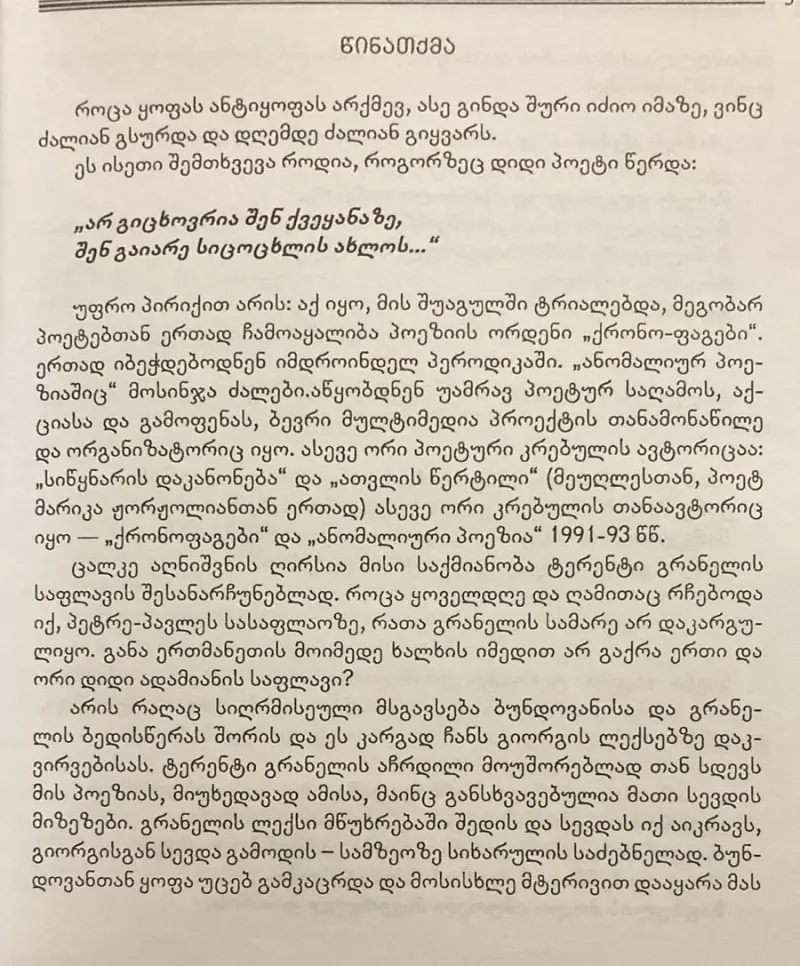 წინათქმა
როცა ყოფას ანტიყოფას არქმევ, ასე გინდა შური იძიო იმაზე, ვინც
ძალიან გსურდა და დღემდე ძალიან გიყვარს.
ეს ისეთი შემთხვევა როდია, როგორზეც დიდი პოეტი წერდა:
„არ გიცხოვრია შენ ქვეყანაზე,
შენ გაიარე სიცოცხლის ახლოს...“
უფრო პირიქით არის: აქ იყო, მის შუაგულში ტრიალებდა, მეგობარ
პოეტებთან ერთად ჩამოაყალიბა პოეზიის ორდენი „ქრონო-ფაგები“.
ერთად იბეჭდებოდნენ იმდროინდელ პეროდიკაში. „ანომალიურ პოე-
ზიაშიც“ მოსინჯა ძალები.აწყობდნენ უამრავ პოეტურ საღამოს, აქ-
ციასა და გამოფენას, ბევრი მულტიმედია პროექტის თანამონაწილე
და ორგანიზატორიც იყო. ასევე ორი პოეტური კრებულის ავტორიცაა:
„სიწყნარის დაკანონება“ და „ათვლის წერტილი“ (მეუღლესთან, პოეტ
მარიკა ჟორჟოლიანთან ერთად) ასევე ორი კრებულის თანაავტორიც
იყო — „ქრონოფაგები“ და „ანომალიური პოეზია“ 1991-93 წწ.
ცალკე აღნიშვნის ღირსია მისი საქმიანობა ტერენტი გრანელის
საფლავის შესანარჩუნებლად. როცა ყოველდღე და ღამითაც რჩებოდა
იქ, პეტრე-პავლეს სასაფლაოზე, რათა გრანელის სამარე არ დაკარგუ-
ლიყო. განა ერთმანეთის მოიმედე ხალხის იმედით არ გაქრა ერთი და
ორი დიდი ადამიანის საფლავი?
არის რაღაც სიღრმისეული მსგავსება ბუნდოვანისა და გრანე-
ლის ბედისწერას შორის და ეს კარგად ჩანს გიორგის ლექსებზე დაკ-
ვირვებისას. ტერენტი გრანელის აჩრდილი მოუშორებლად თან სდევს
მის პოეზიას, მიუხედავად ამისა, მაინც განსხვავებულია მათი სევდის
მიზეზები. გრანელის ლექსი მწუხრებაში შედის და სევდას იქ აიკრავს,
გიორგისგან სევდა გამოდის – სამზეოზე სიხარულის საძებნელად. ბუნ-
დოვანთან ყოფა უცებ გამკაცრდა და მოსისხლე მტერივით დააყარა მას